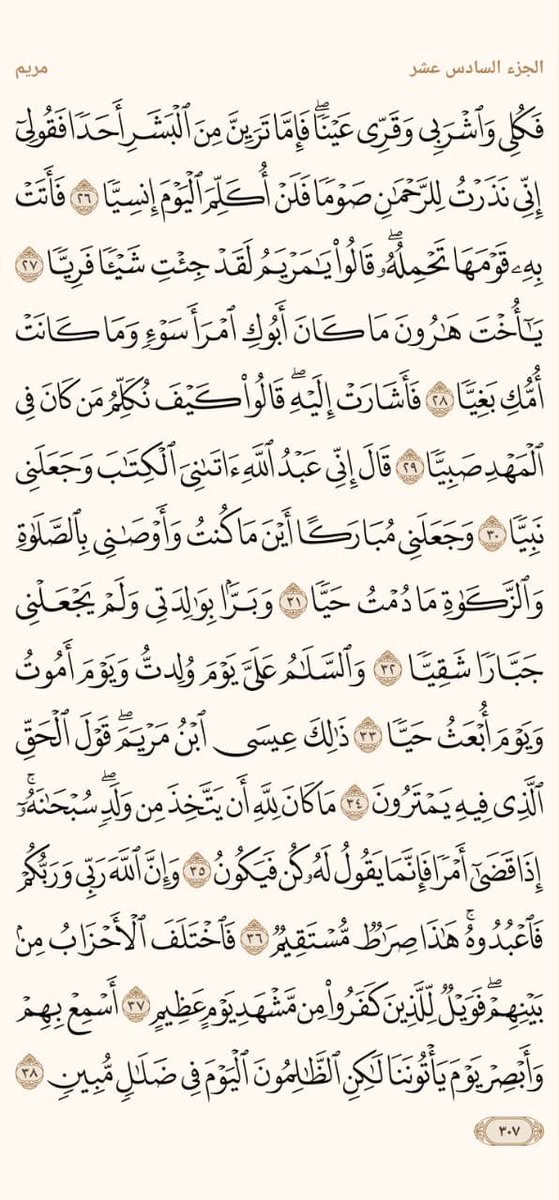 الجزء السادس عشر
مريم
فَكُلِي وَٱشۡرَبِي وَقَرِّي عَيۡنٗاۖ فَإِمَّا تَرَيِنَّ مِنَ ٱلۡبَشَرِ أَحَدٗا فَقُولِيٓ
إِنِّي نَذَرۡتُ لِلرَّحۡمَٰنِ صَوۡمٗا فَلَنۡ أُكَلِّمَ ٱلۡيَوۡمَ إِنسِيّٗا ٢٦ فَأَتَتۡ
بِهِۦ قَوۡمَهَا تَحۡمِلُهُۥۖ قَالُواْ يَٰمَرۡيَمُ لَقَدۡ جِئۡتِ شَيۡـٔٗا فَرِيّٗا ٢٧
يَٰٓأُخۡتَ هَٰرُونَ مَا كَانَ أَبُوكِ ٱمۡرَأَ سَوۡءٖ وَمَا كَانَتۡ
أُمُّكِ بَغِيّٗا ٢٨ فَأَشَارَتۡ إِلَيۡهِۖ قَالُواْ كَيۡفَ نُكَلِّمُ مَن كَانَ فِي
ٱلۡمَهۡدِ صَبِيّٗا ٢٩ قَالَ إِنِّي عَبۡدُ ٱللَّهِ ءَاتَىٰنِيَ ٱلۡكِتَٰبَ وَجَعَلَنِي
نَبِيّٗا ٣٠ وَجَعَلَنِي مُبَارَكًا أَيۡنَ مَا كُنتُ وَأَوۡصَٰنِي بِٱلصَّلَوٰةِ
وَٱلزَّكَوٰةِ مَا دُمۡتُ حَيّٗا ٣١ وَبَرَّۢا بِوَٰلِدَتِي وَلَمۡ يَجۡعَلۡنِي
جَبَّارٗا شَقِيّٗا ٣٢ وَٱلسَّلَٰمُ عَلَيَّ يَوۡمَ وُلِدتُّ وَيَوۡمَ أَمُوتُ
وَيَوۡمَ أُبۡعَثُ حَيّٗا ٣٣ ذَٰلِكَ عِيسَى ٱبۡنُ مَرۡيَمَۖ قَوۡلَ ٱلۡحَقِّ
ٱلَّذِي فِيهِ يَمۡتَرُونَ ٣٤ مَا كَانَ لِلَّهِ أَن يَتَّخِذَ مِن وَلَدٖۖ سُبۡحَٰنَهُۥٓۚ
إِذَا قَضَىٰٓ أَمۡرٗا فَإِنَّمَا يَقُولُ لَهُۥ كُن فَيَكُونُ ٣٥ وَإِنَّ ٱللَّهَ رَبِّي وَرَبُّكُمۡ
فَٱعۡبُدُوهُۚ هَٰذَا صِرَٰطٞ مُّسۡتَقِيمٞ ٣٦ فَٱخۡتَلَفَ ٱلۡأَحۡزَابُ مِنۢ
بَيۡنِهِمۡۖ فَوَيۡلٞ لِّلَّذِينَ كَفَرُواْ مِن مَّشۡهَدِ يَوۡمٍ عَظِيمٍ ٣٧ أَسۡمِعۡ بِهِمۡ
وَأَبۡصِرۡ يَوۡمَ يَأۡتُونَنَا لَٰكِنِ ٱلظَّٰلِمُونَ ٱلۡيَوۡمَ فِي ضَلَٰلٖ مُّبِينٖ ٣٨
٣٠٧